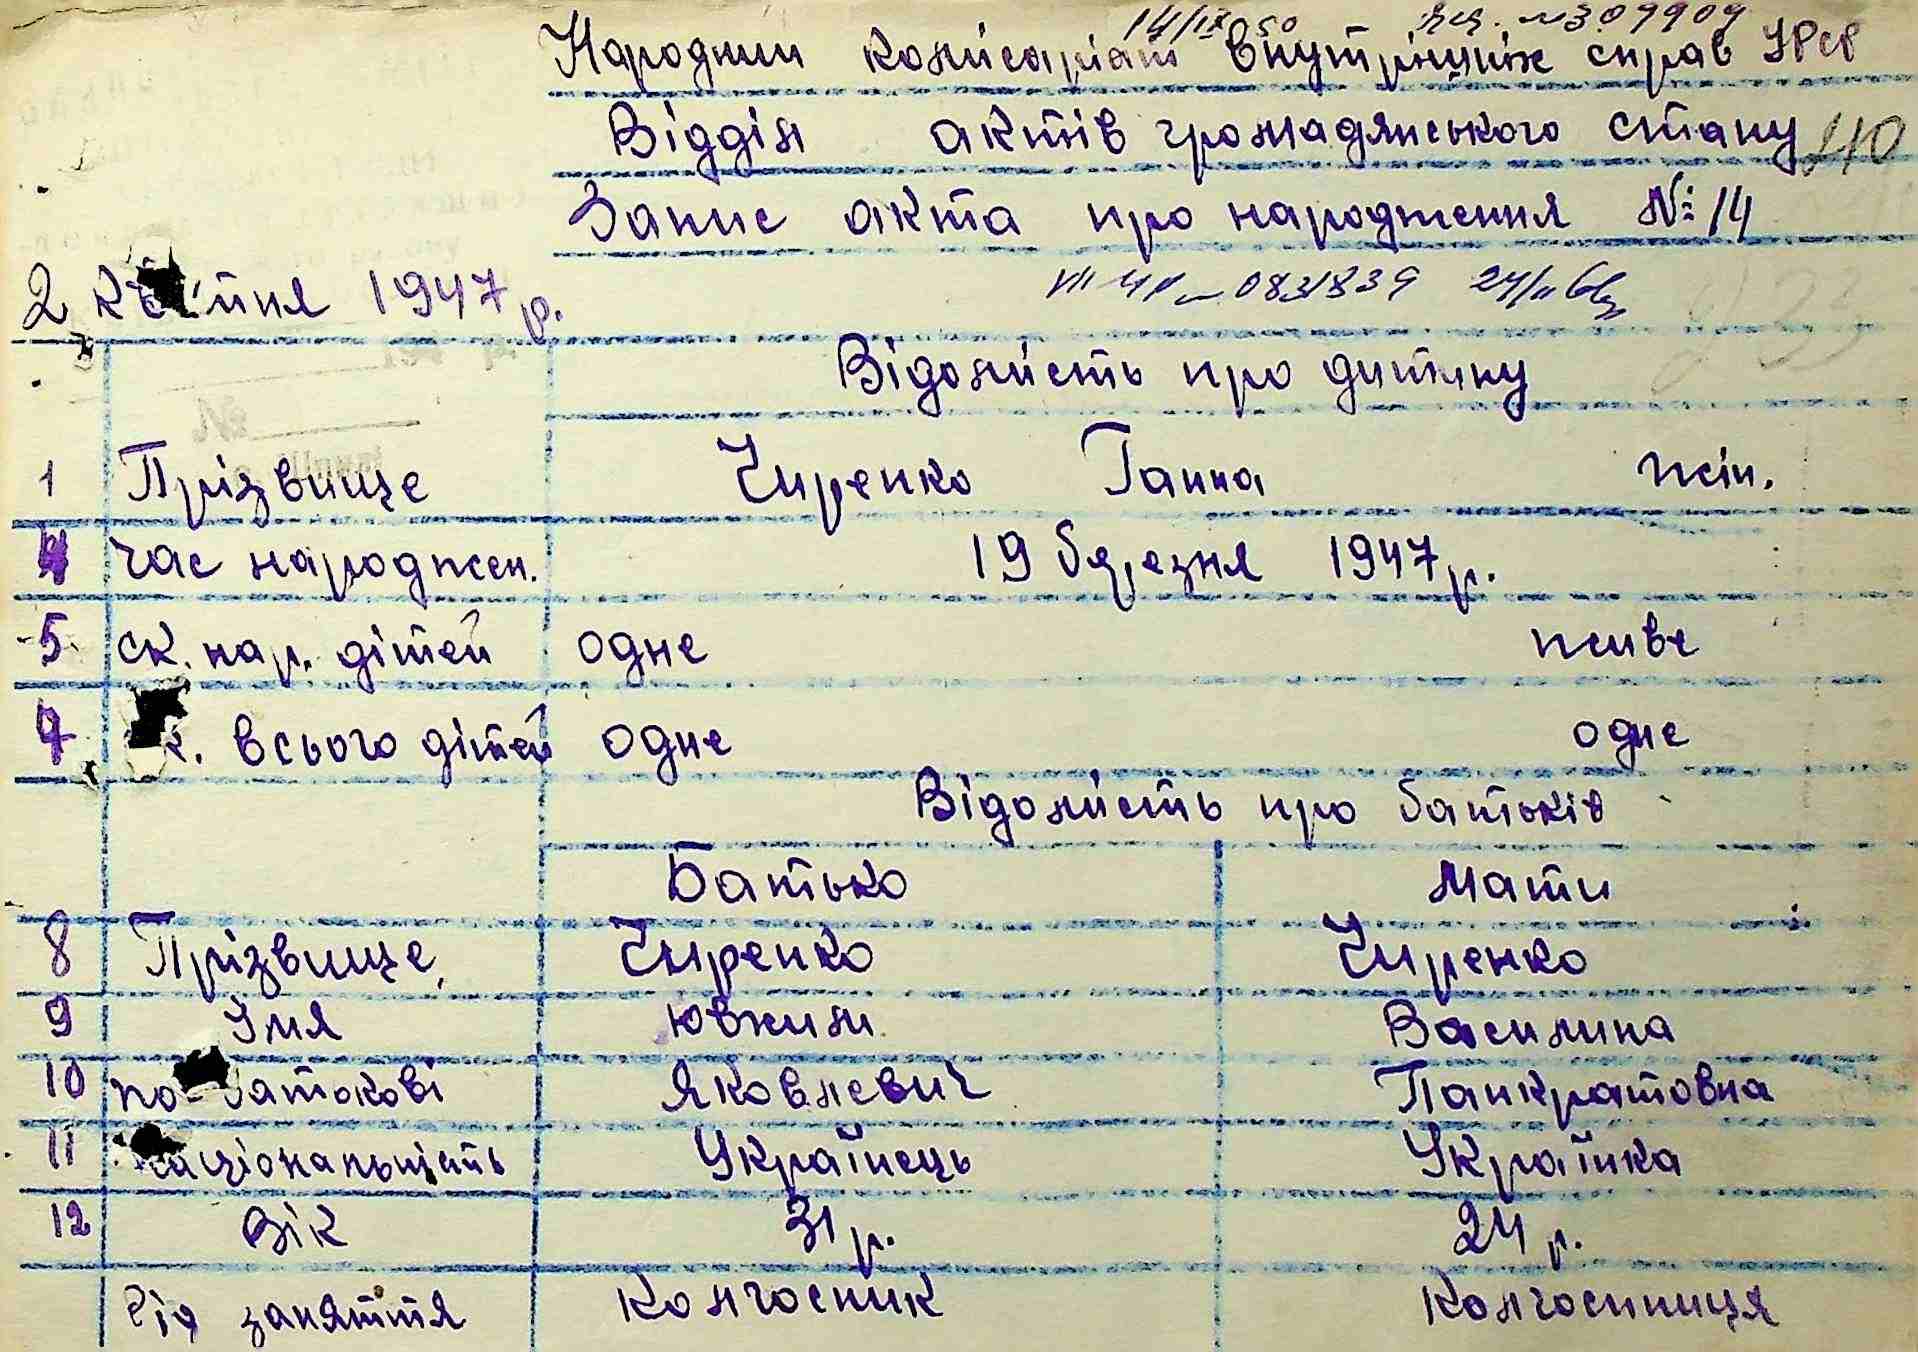 14/IX 50
Народний комісаріат внутрішніх справ УРСР
Відділ актів громадянського стану 210
Запис акта про народження № 14
2 квітня 1947 р.
Відомість про дитину
1 Прізвище Чиренко Ганна жін.
4 час народжен. 19 березня 1947 р.
5 ск. нар. дітей одне живе
7 к. всього дітей одне одне
Відомість про батьків
Батько Мати
8 Прізвище Чиренко Чиренко
9 Імя Ювхим Василина
10 по-батькові Яковлевич Панкратовна
11 національність Українець Українка
12 Вік 31 р. 24 р.
Рід заняття колгосник колгоспниця